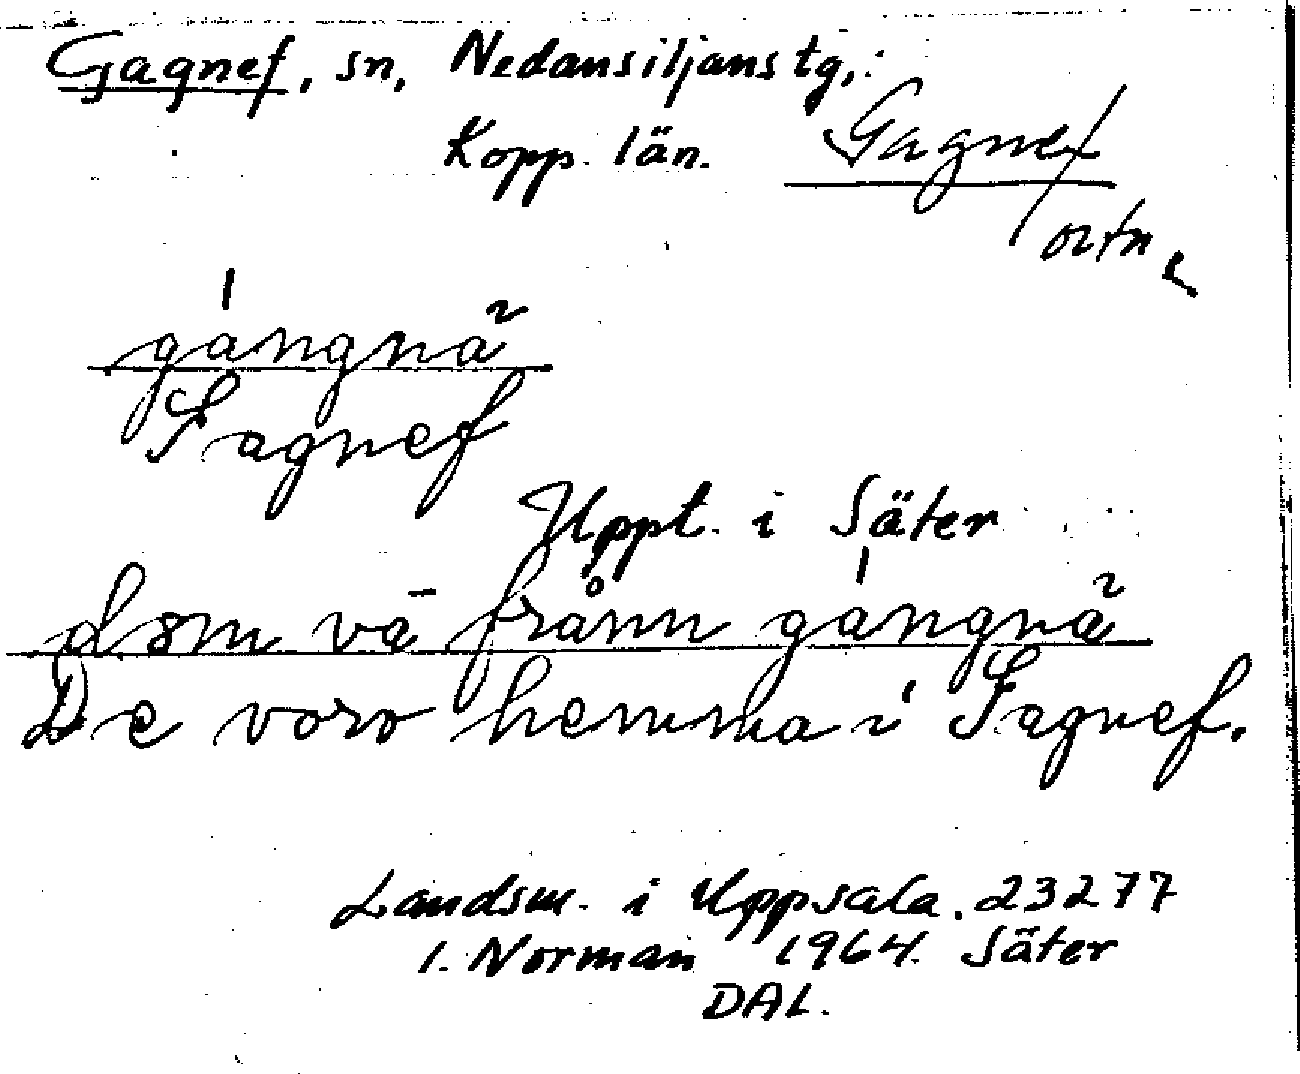 Gagnef, sn, Nedansiljans tg,:
Kopp. län. Gagnef
ortn
gángnä̀
Gagnef
Uppt. i Säter
dsm vā frånn gángnä̀
De voro hemma i Gagnef.
Landsm. i Uppsala. 23277
I. Norman 1964. Säter
DAL.